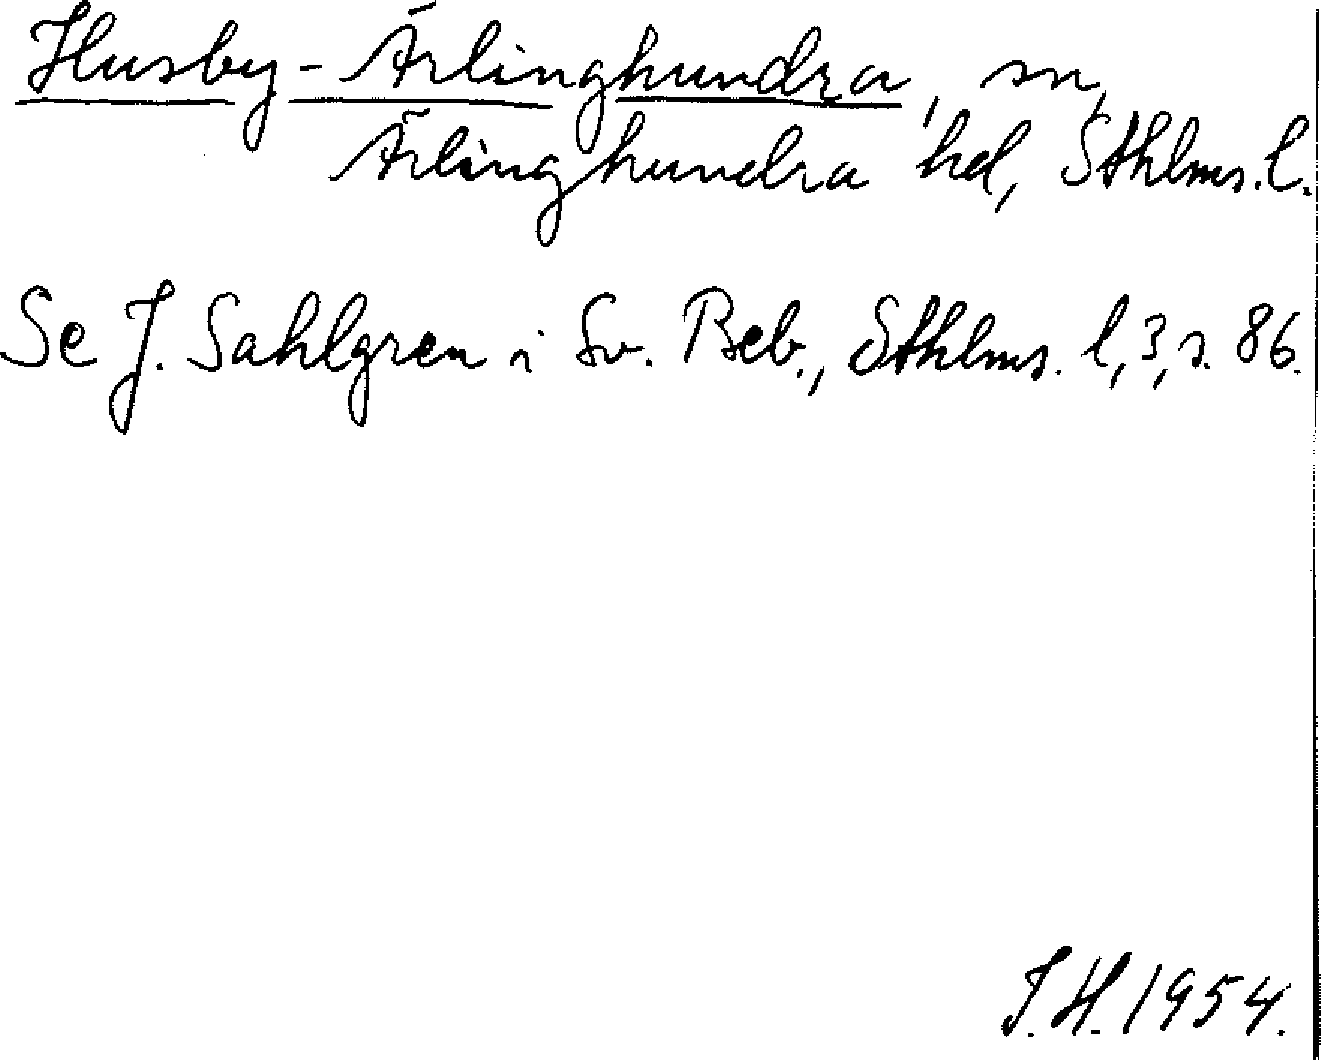 Husby-Ärlinghundra, sn,
Ärlinghundra hd, Sthlms.l.
Se J. Sahlgren i Sv. Beb., Sthlms. l, 3, s. 86.
J.H. 1954.